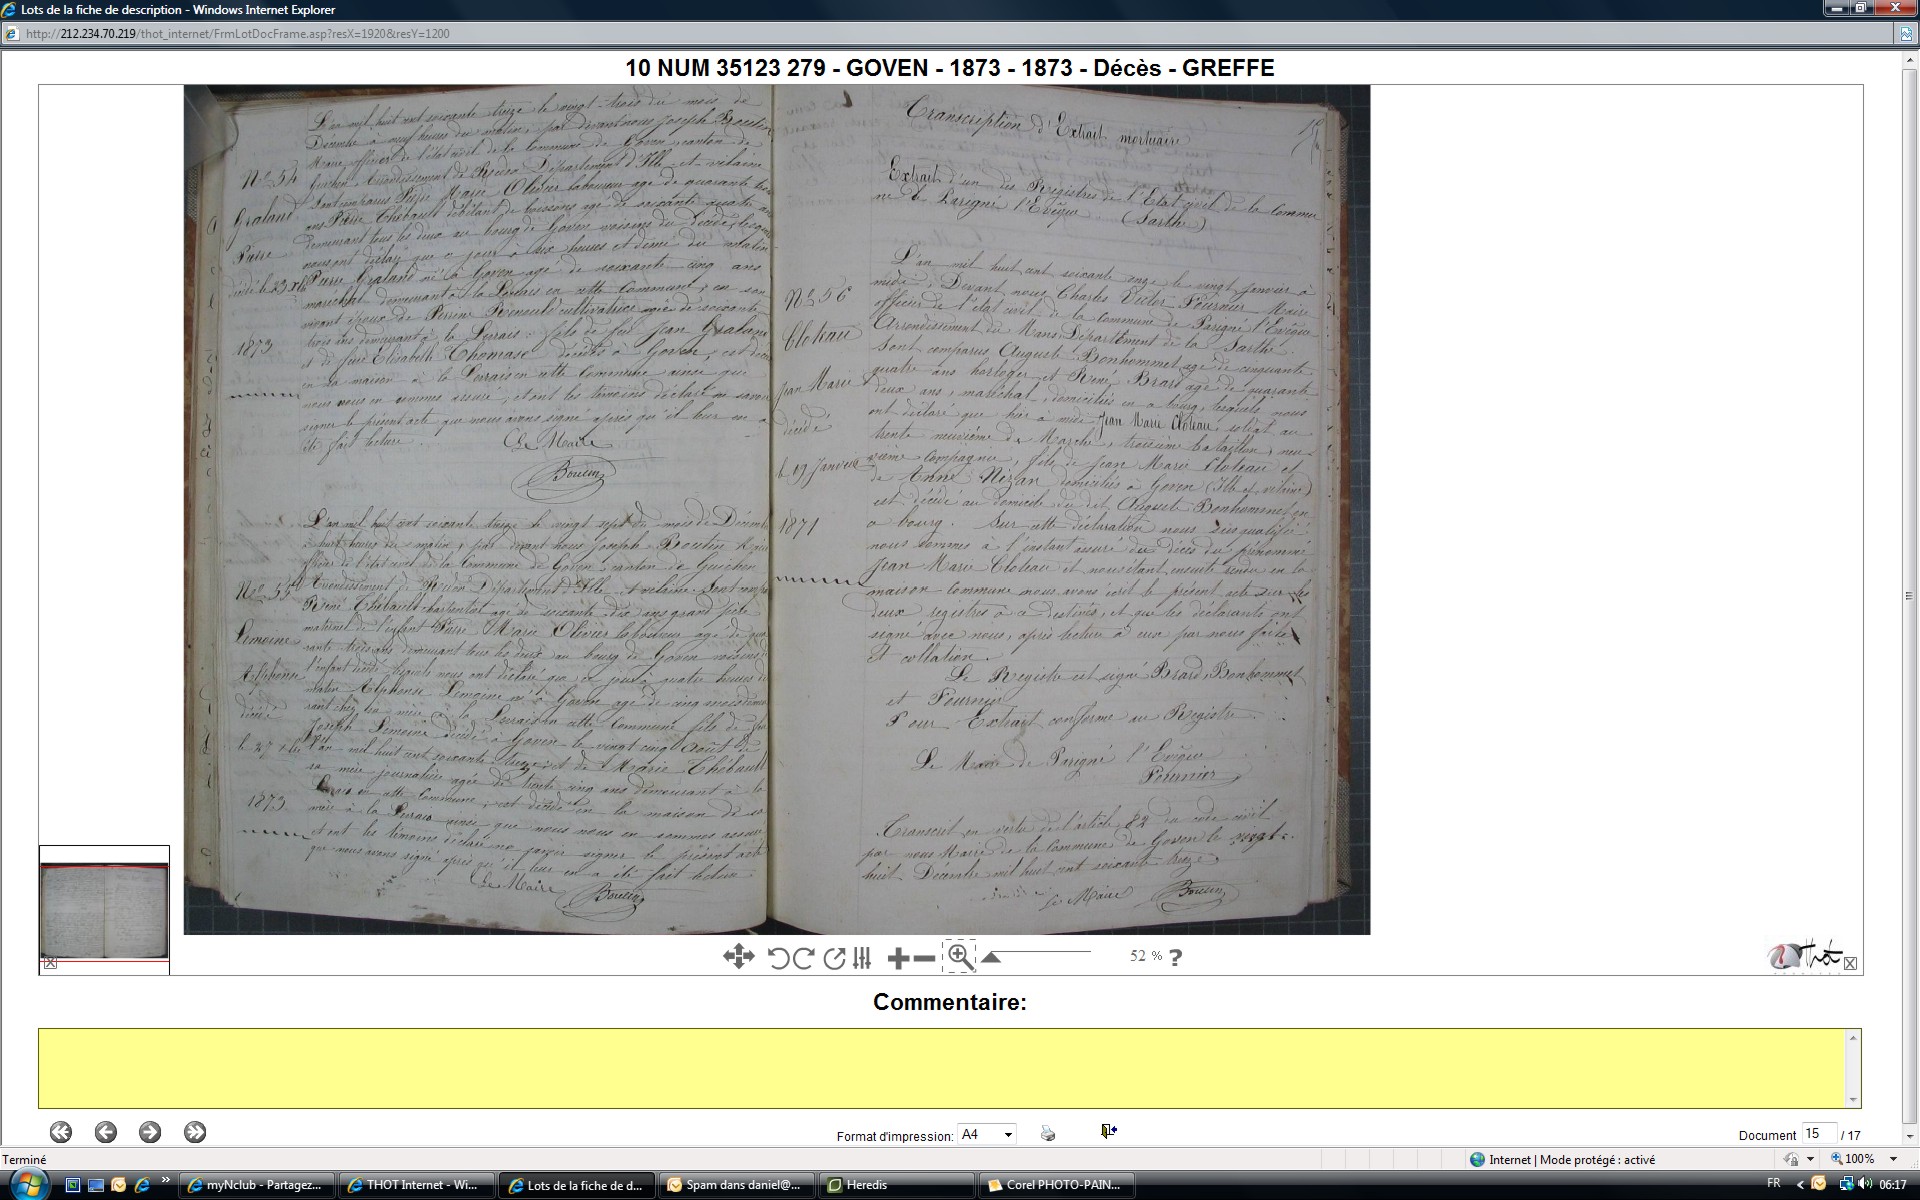 Lots de la fiche de description - Windows Internet Explorer
http://212.234.70.219/thot_internet/FrmLotDocFrame.asp?resX=1920&resY=1200
10 NUM 35123 279 - GOVEN - 1873 - 1873 - Décès - GREFFE
L'an mil huit cent soixante treize le vingt-trois du mois de
Décembre à neuf heures du matin, par devant nous Joseph Boutin
Maire officier de l'état civil de la commune de Goven, canton de
Guichen, Arrondissement de Redon Département d'Ille-et-vilaine
Sont comparus Pierre Marie Olivier laboureur agé de quarante trois
ans Pierre Thébault débitant de boissons agé de soixante quatre ans
demeurant tous les deux au bourg de Goven voisins du décédé, lesquels
nous ont déclaré que ce jour à six heures et demie du matin
Pierre Graland né à Goven agé de soixante cinq ans
maréchal demeurant à la en cette Commune, en son
vivant époux de Perrine cultivatrice agée de soixante
trois ans demeurant à la fils de feu Jean Graland
et de feue Elisabeth Thomase décédés à Goven, est décédé
en sa maison à la en cette Commune ainsi que
nous nous en sommes assuré, et ont les témoins déclaré ne savoir
signer le présent acte que nous avons signé après qu'il leur en a
été fait lecture.
Le Maire
Boutin
No 54
Graland
Pierre
décédé le 23 Xbre
1873
L'an mil huit cent soixante treize le vingt sept du mois de Décembre
à huit heures du matin, par devant nous Joseph Boutin Maire
officier de l'état civil de la Commune de Goven, canton de Guichen
Arrondissement de Redon Département d'Ille-et-vilaine. Sont comparus
René Thébault charpentier agé de soixante dix ans grand père
maternel de l'enfant Pierre Marie Olivier laboureur agé de qua
rante trois ans demeurant tous les deux au bourg de Goven voisins de
l'enfant décédé lesquels nous ont déclaré que ce jour à quatre heures du
matin Alphonse Lemoine né à Goven agé de cinq mois demeu
rant chez sa mère à la en cette Commune fils de feu
Joseph Lemoine décédé à Goven le vingt cinq Août
l'an mil huit cent soixante treize et de Marie Thébault
sa mère journalière agée de trente cinq ans demeurant à la
en cette Commune, est décédé en la maison de sa
mère à la ainsi que nous nous en sommes assuré
et ont les témoins déclaré ne savoir signer le présent acte
que nous avons signé après qu'il leur en a été fait lecture
Le Maire
Boutin
No 55
Lemoine
Alphonse
décédé
le 27 Xbre
1873
Transcription d'Extrait mortuaire
Extrait d'un des Registres de l'Etat civil de la Commu
ne de Parigné l'Evêque (Sarthe)
No 56
Cloteau
Jean Marie
décédé
le 19 Janvier
1871
L'an mil huit cent soixante onze le vingt janvier à
midi, Devant nous Charles Victor Fournier Maire
officier de l'état civil de la commune de Parigné l'Evêque
Arrondissement du Mans, Département de la Sarthe.
Sont comparus Auguste Bonhommet agé de cinquante
quatre ans horloger et René Brard agé de quarante
deux ans, maréchal, domiciliés en ce bourg, lesquels nous
ont déclaré que hier à midi Jean Marie Cloteau, soldat au
trente neuvième de Marche, troisième bataillon, neu-
vième Compagnie, fils de Jean Marie Cloteau et
de Anne Nizan domiciliés à Goven (Ille et vilaine)
est décédé au domicile du dit Auguste Bonhommet en
ce bourg. Sur cette déclaration nous susqualifié
nous sommes à l'instant assuré du décès du prénommé
Jean Marie Cloteau et nous étant ensuite rendu en la
maison commune nous avons écrit le présent acte sur les
deux registres à ce destinés, et que les déclarants ont
signé avec nous, après lecture à eux par nous faite
et collation.
Le Registre est signé Brard, Bonhommet
et Fournier
Pour Extrait conforme au Registre.
Le Maire de Parigné l'Evêque
Fournier
Transcrit en vertu de l'article 82 du code civil
par nous Maire de la Commune de Goven le vingt-
huit Décembre mil huit cent soixante treize
Le Maire
Boutin
52 % ?
Thot
Commentaire:
Format d'impression: A4
Document 15 / 17
Terminé
Internet | Mode protégé : activé
100%
myNclub - Partagez...
THOT Internet - Wi...
Lots de la fiche de d...
Spam dans daniel@...
Heredis
Corel PHOTO-PAIN...
FR
06:17